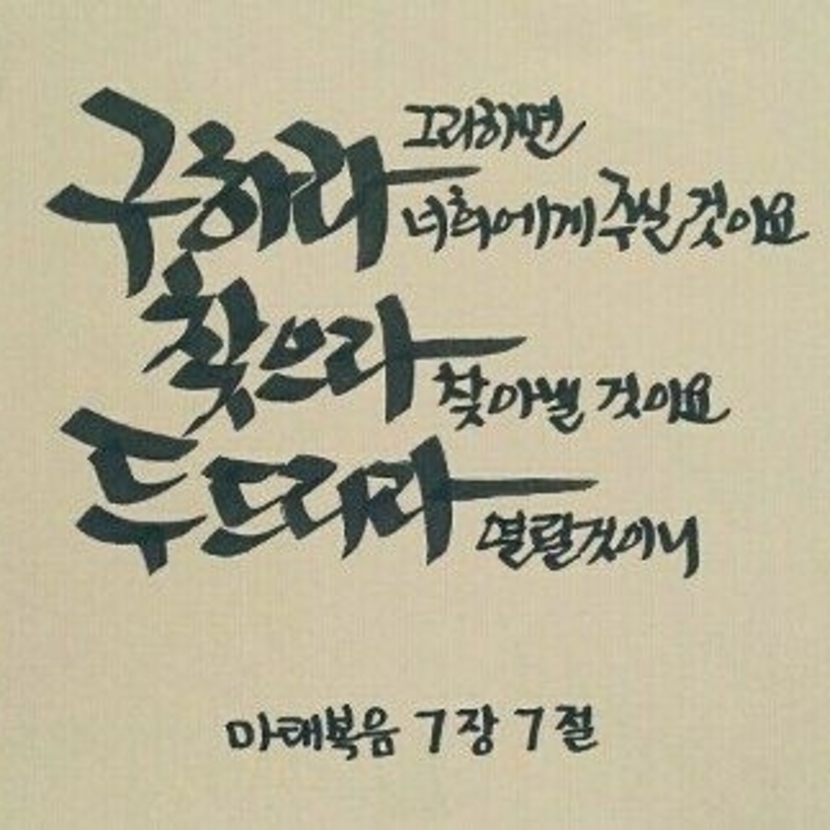 구하라 그리하면
너희에게 주실 것이요
찾으라
찾아낼 것이요
두드리라
열릴것이니
마태복음 7장 7절